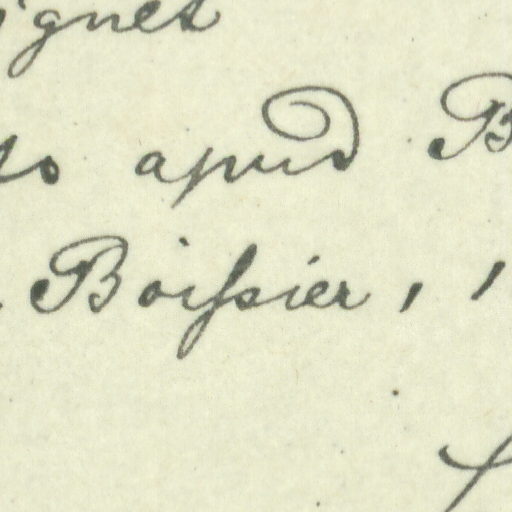 ignet
so apud B
Boissier, 1